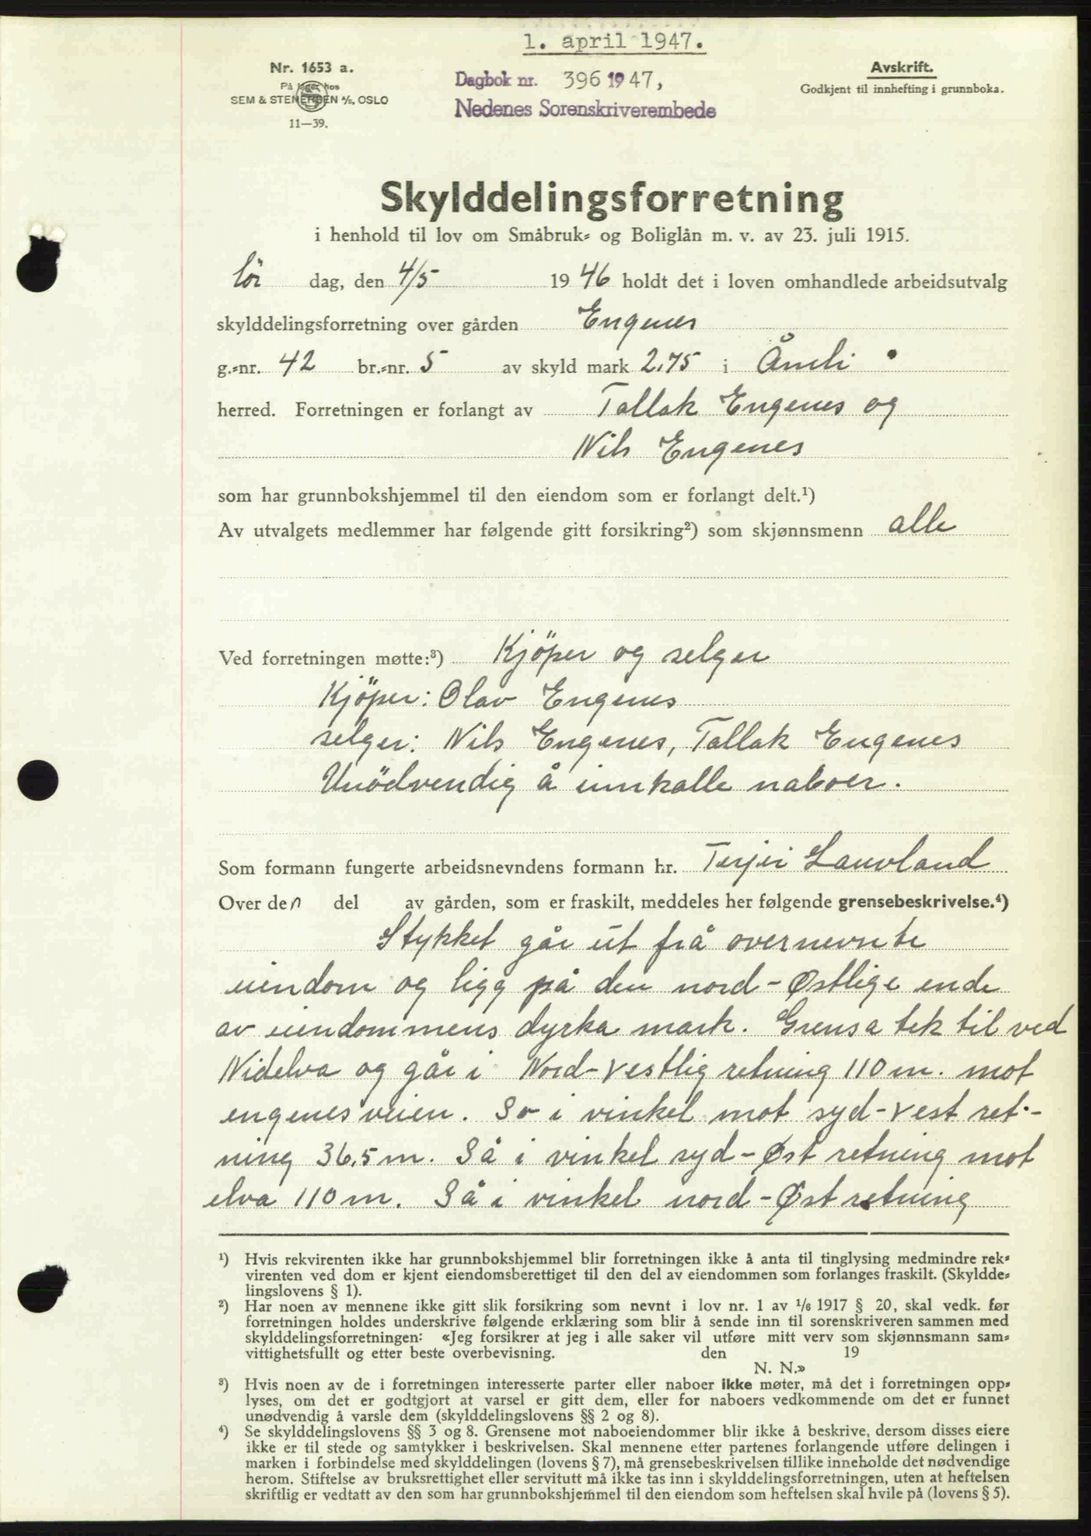 1. april 1947.
Nr. 1653 a.
På lager hos
SEM & STENERSEN A/S, OSLO
11—39.
Dagbok nr. 396 1947,
Nedenes Sorenskriverembede
Avskrift.
Godkjent til innhefting i grunnboka.
Skylddelingsforretning
i henhold til lov om Småbruk- og Boliglån m. v. av 23. juli 1915.
lör dag, den 4/5 1946 holdt det i loven omhandlede arbeidsutvalg
skylddelingsforretning over gården Engenes
g.-nr. 42 br.-nr. 5 av skyld mark 2.75 i Åmli
herred. Forretningen er forlangt av Tallak Engenes og
Nils Engenes
som har grunnbokshjemmel til den eiendom som er forlangt delt.¹)
Av utvalgets medlemmer har følgende gitt forsikring²) som skjønnsmenn alle
Ved forretningen møtte:³) Kjöper og selger
Kjöper: Olav Engenes
selger: Nils Engenes, Tallak Engenes
Unödvendig å innkalle naboer.
Som formann fungerte arbeidsnevndens formann hr. Terjei Lauvland
Over den del av gården, som er fraskilt, meddeles her følgende grensebeskrivelse.⁴)
Stykket går ut frå overnevnte
eiendom og ligg på den nord-Østlige ende
av eiendommens dyrka mark. Grensa tek til ved
Nidelva og går i Nord-vestlig retning 110 m. mot
engenesveien. So i vinkel mot syd-vest ret-
ning 36,5 m. Så i vinkel syd-Øst retning mot
elva 110 m. Så i vinkel nord-Øst retning
¹) Hvis rekvirenten ikke har grunnbokshjemmel blir forretningen ikke å anta til tinglysing medmindre rek-
virenten ved dom er kjent eiendomsberettiget til den del av eiendommen som forlanges fraskilt. (Skyldde-
lingslovens § 1).
²) Har noen av mennene ikke gitt slik forsikring som nevnt i lov nr. 1 av 1/6 1917 § 20, skal vedk. før
forretningen holdes underskrive følgende erklæring som blir å sende inn til sorenskriveren sammen med
skylddelingsforretningen: «Jeg forsikrer at jeg i alle saker vil utføre mitt verv som skjønnsmann sam-
vittighetsfullt og etter beste overbevisning. den 19
N. N.»
³) Hvis noen av de i forretningen interesserte parter eller naboer ikke møter, må det i forretningen opp-
lyses, om det er godtgjort at varsel er gitt dem, eller for naboers vedkommende om det er funnet
unødvendig å varsle dem (skylddelingslovens §§ 2 og 8).
⁴) Se skylddelingslovens §§ 3 og 8. Grensene mot naboeiendommer blir ikke å beskrive, dersom disses eiere
ikke er til stede og samtykker i beskrivelsen. Skal mennene etter partenes forlangende utføre delingen i
marken i forbindelse med skylddelingen (lovens § 7), må grensebeskrivelsen tillike inneholde det nødvendige
herom. Stiftelse av bruksrettighet eller servitutt må ikke tas inn i skylddelingsforretningen, uten at heftelsen
skriftlig er vedtatt av den som har grunnbokshjemmel til den eiendom som heftelsen skal hvile på (lovens § 5).